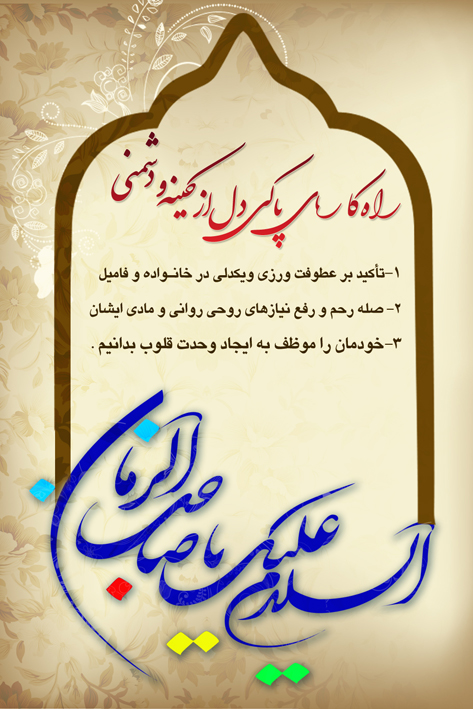 راه کارهای پاکی دل از کینه و دشمنی
۱-تأکید بر عطوفت ورزی ویکدلی در خانـواده و فامیل
۲- صله رحم و رفع نیازهای روحی روانی و مادی ایشان
۳-خودمان را موظف به ایجاد وحدت قلوب بدانیم .
السلام علیک یا صاحب الزمان